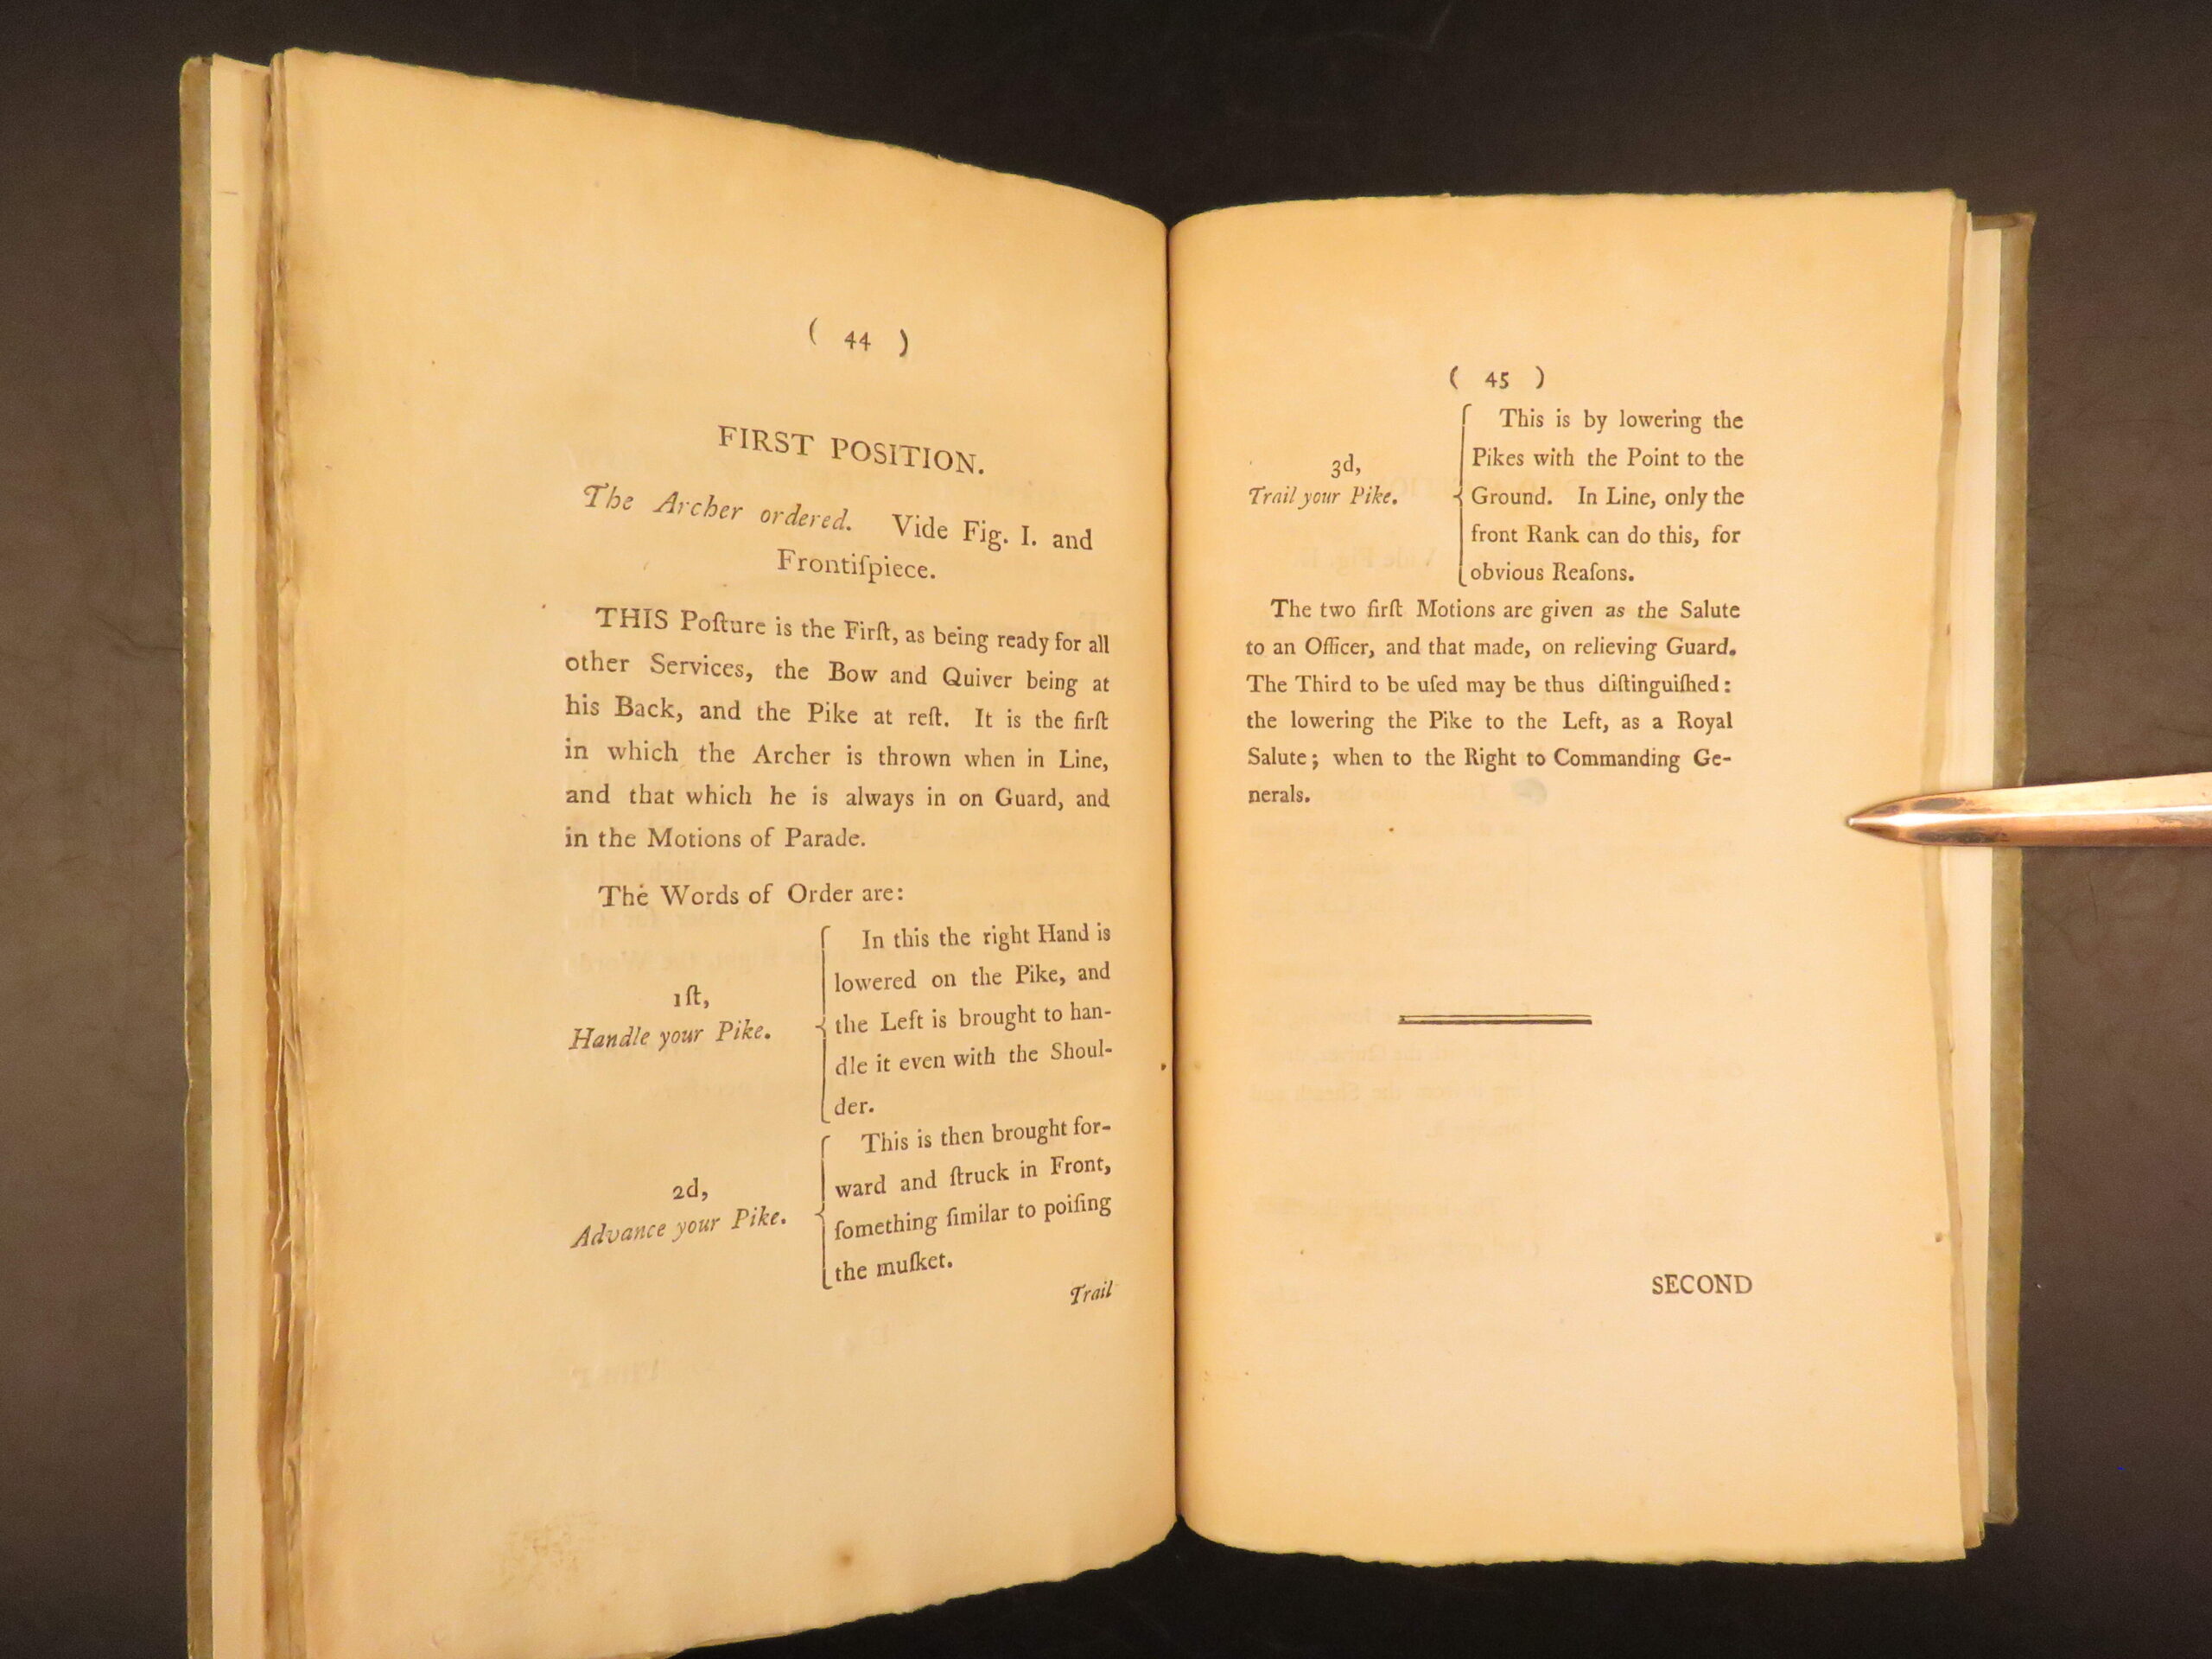 ( 44 )
FIRST POSITION.
The Archer ordered. Vide Fig. I. and
Frontiſpiece.
THIS Poſture is the Firſt, as being ready for all
other Services, the Bow and Quiver being at
his Back, and the Pike at reſt. It is the firſt
in which the Archer is thrown when in Line,
and that which he is always in on Guard, and
in the Motions of Parade.
The Words of Order are:
1ſt,
Handle your Pike.
In this the right Hand is
lowered on the Pike, and
the Left is brought to han-
dle it even with the Shoul-
der.
2d,
Advance your Pike.
This is then brought for-
ward and ſtruck in Front,
ſomething ſimilar to poiſing
the muſket.
Trail
( 45 )
3d,
Trail your Pike.
This is by lowering the
Pikes with the Point to the
Ground. In Line, only the
front Rank can do this, for
obvious Reaſons.
The two firſt Motions are given as the Salute
to an Officer, and that made, on relieving Guard.
The Third to be uſed may be thus diſtinguiſhed:
the lowering the Pike to the Left, as a Royal
Salute; when to the Right to Commanding Ge-
nerals.
SECOND